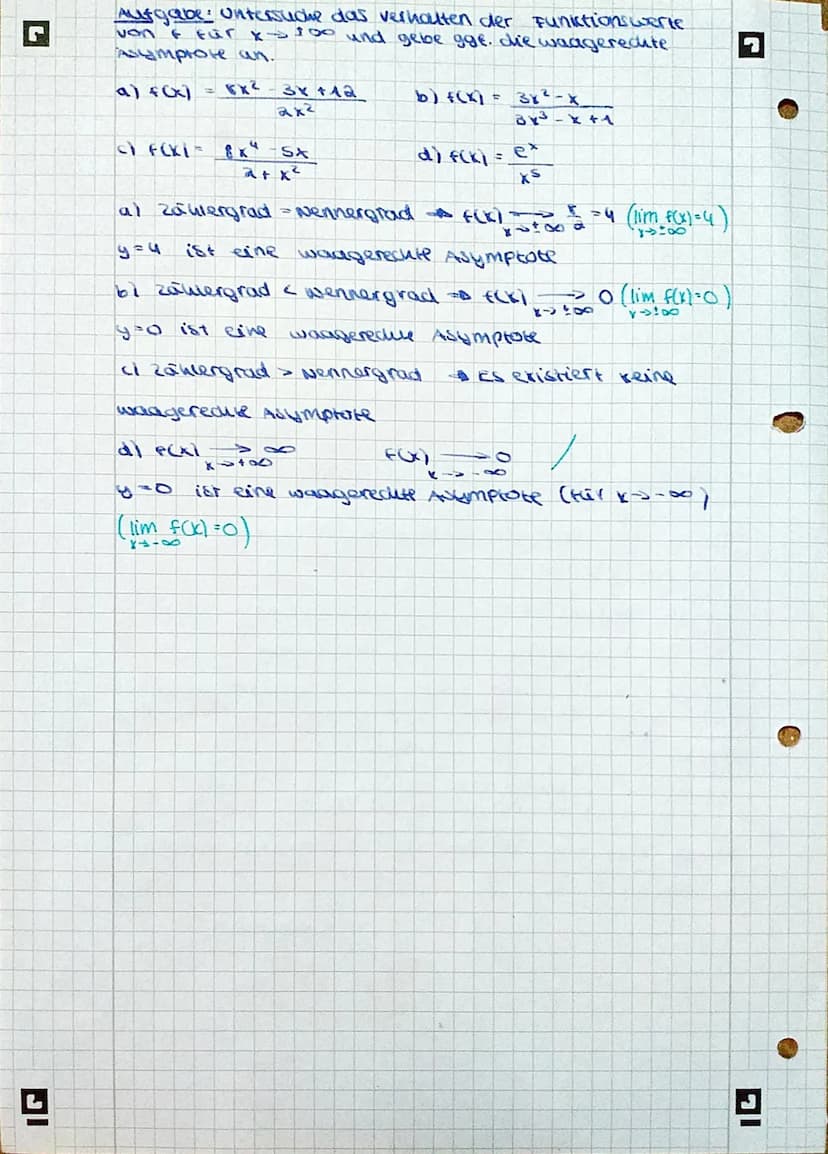 Aufgabe: Untersuche das Verhalten der Funktionswerte
von f für x→±∞ und gebe ggf. die waagerechte
Asymptote an.
a) f(x) = (8x² - 3x + 12)/(2x²) b) f(x) = (3x² - x)/(3x³ - x + 1)
c) f(x) = (8x⁴ - 5x)/(2 + x²) d) f(x) = eˣ/x⁵
a) Zählergrad = Nennergrad → f(x) ⟶ 8/2 = 4 (lim f(x)=4)
x→±∞ x→±∞
y=4 ist eine waagerechte Asymptote
b) Zählergrad < Nennergrad → f(x) ⟶ 0 (lim f(x)=0)
x→±∞ x→±∞
y=0 ist eine waagerechte Asymptote
c) Zählergrad > Nennergrad → Es existiert keine
waagerechte Asymptote
d) f(x) ⟶ ∞ f(x) ⟶ 0
x→+∞ x→-∞
y=0 ist eine waagerechte Asymptote (für x→-∞)
(lim f(x)=0)
x→-∞